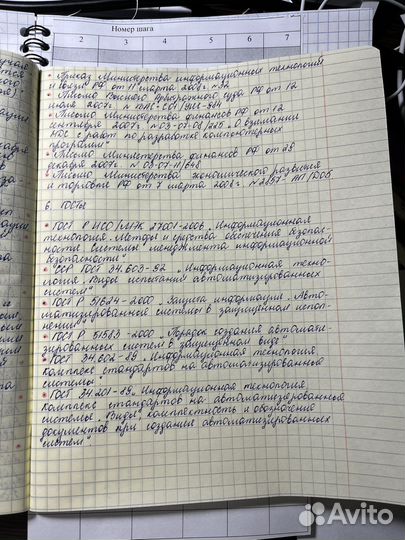 Номер шага
2 3 4 5 6 7
• Приказ Министерства информационных технологий
и связи РФ от 11 марта 2008г. №32
• Письмо Высшего Арбитражного суда РФ от 12
июля 2007г.
• Письмо Министерства финансов РФ от 12
сентября 2007г. №03-07-08/265 „О взимании
НДС с работ по разработке компьютерных
программ"
• Письмо Министерства финансов РФ от 29
декабря 2007г. № 03-07-11/648
• Письмо Министерства экономического развития
и торговли РФ от 7 марта 2008г.
6. ГОСТы
• ГОСТ Р ИСО/МЭК 27001-2006 „Информационная
технология. Методы и средства обеспечения безопас-
ности. Системы менеджмента информационной
безопасности"
• ГОСТ 34.603-92 „Информационная техно-
логия. Виды испытаний автоматизированных
систем"
• ГОСТ Р 51624-2000 „Защита информации. Авто-
матизированные системы в защищенном испол-
нении"
• ГОСТ Р 51583-2000 „Порядок создания автомати-
зированных систем в защищенном виде"
• ГОСТ 34.602-89 „Информационная технология
Комплекс стандартов на автоматизированные
системы"
• ГОСТ 34.201-89 „Информационная технология
Комплекс стандартов на автоматизированные
системы. Виды, комплектность и обозначение
документов при создании автоматизированных
систем"
Avito